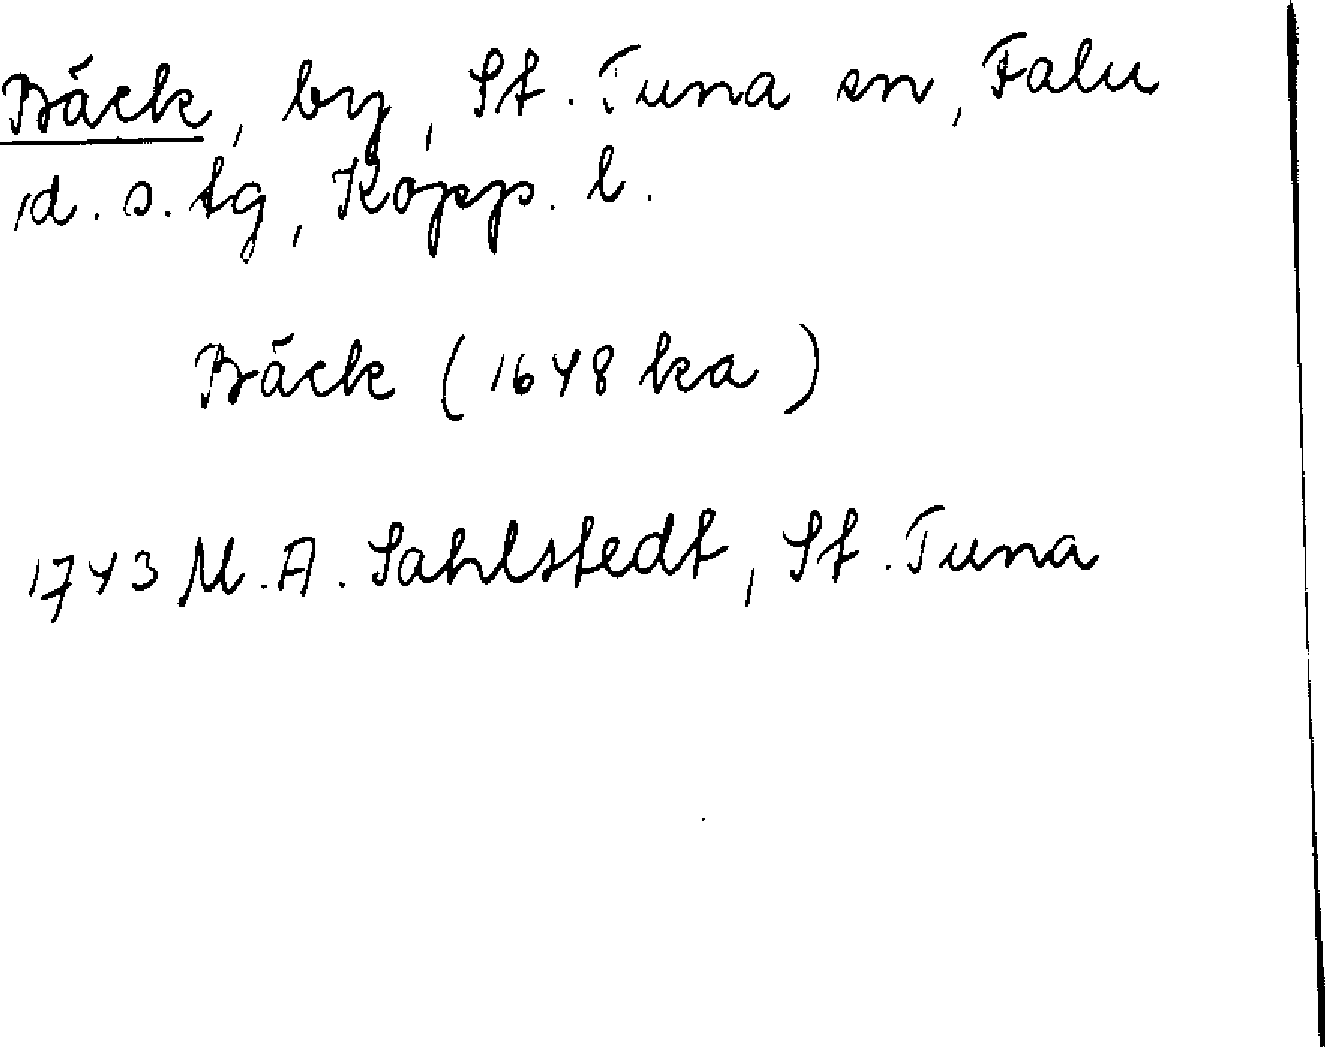 Bäck, by, St. Tuna sn, Falu
d. s. tg, Kopp. l.
Bäck (1648 ka)
1743 M. A. Sahlstedt, St. Tuna